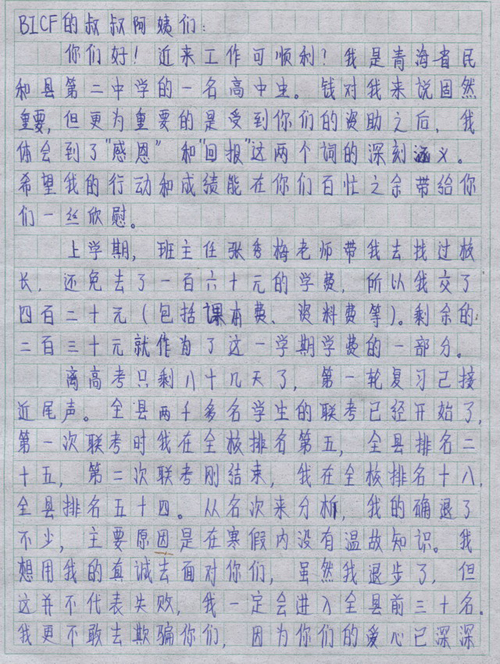 BICF的叔叔阿姨们:
你们好!近来工作可顺利?我是青海省民
和县第二中学的一名高中生。钱对我来说固然
重要,但更为重要的是受到你们的资助之后,我
体会到了"感恩"和"回报"这两个词的深刻涵义。
希望我的行动和成绩能在你们百忙之余带给你
们一丝欣慰。
上学期,班主任张秀梅老师带我去找过校
长,还免去了一百六十元的学费,所以我交了
四百二十元(包括课本费、资料费等)。剩余的
二百三十元就作为了这一学期学费的一部分。
离高考只剩八十几天了,第一轮复习已接
近尾声。全县两千多名学生的联考已经开始了,
第一次联考时我在全校排名第五,全县排名二
十五,第二次联考刚结束,我在全校排名十八,
全县排名五十四。从名次来分析,我的确退了
不少,主要原因是在寒假内没有温故知识。我
想用我的真诚去面对你们,虽然我退步了,但
这并不代表失败,我一定会进入全县前三十名。
我更不敢去欺骗你们,因为你们的爱心已深深